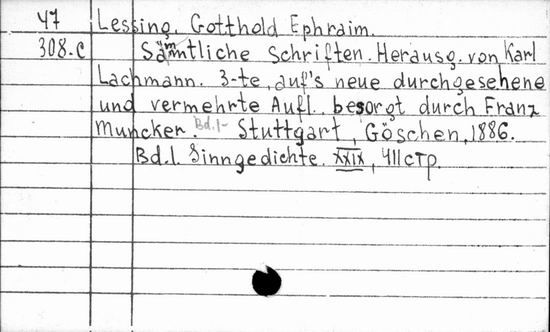 47 Lessing, Gotthold Ephraim.
308.c Sämtliche Schriften. Herausg. von Karl
Lachmann. 3-te, auf's neue durchgesehene
und vermehrte Aufl. besorgt durch Franz
Muncker. Bd.1- Stuttgart, Göschen, 1886.
Bd.1. Sinngedichte. XXIX, 411 стр.